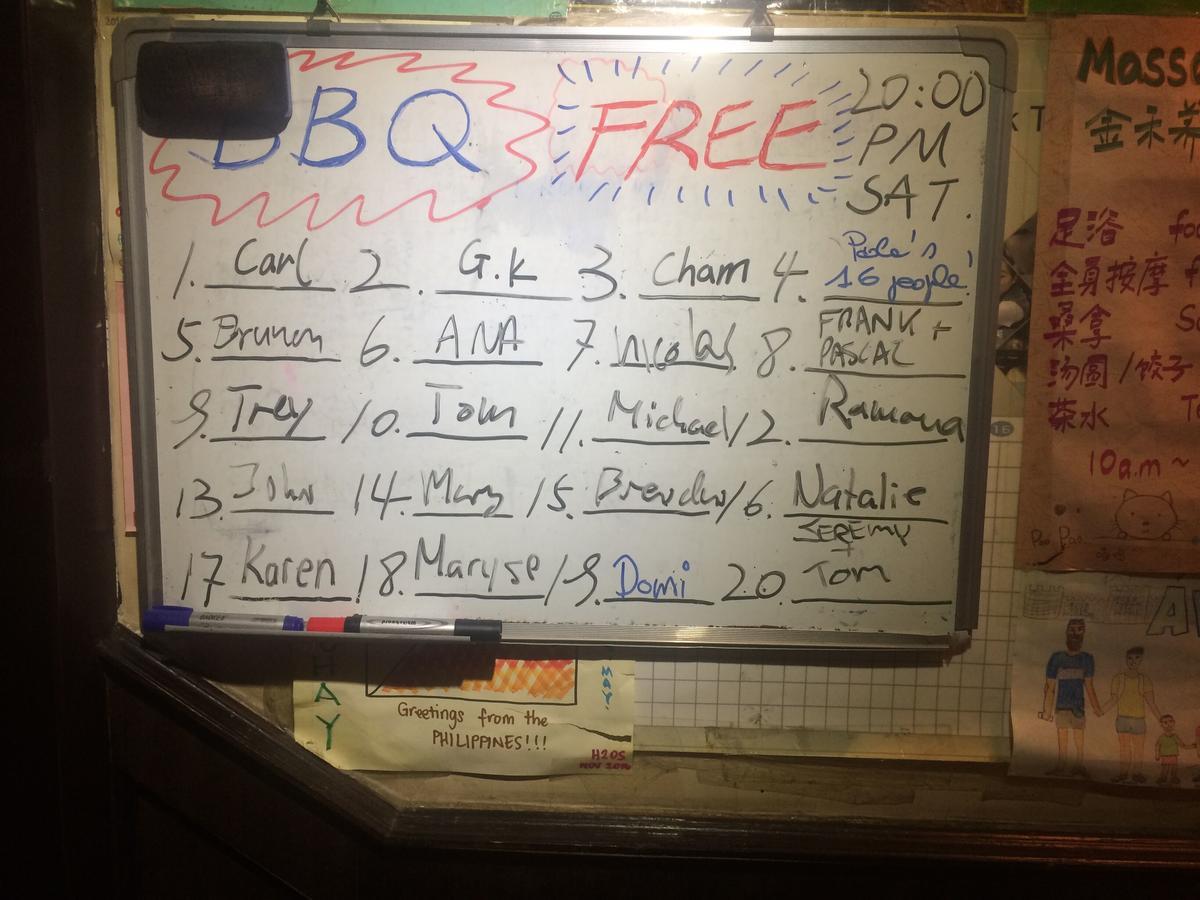 BBQ FREE 20:00
PM
SAT.
1. Carl 2. G.K 3. Cham 4. Paole's
16 people!
5. Brunon 6. ANA 7. Nicolas 8. FRANK +
PASCAL
9. Trey 10. Tom 11. Michael 12. Ramona
13. John 14. Mary 15. Brendan 16. Natalie
17 Karen 18. Maryse 19. Domi 20. JEREMY
+
Tom
HAY
MAY
Greetings from the
PHILIPPINES!!!
H2OS
NOV 2016
Mass
金禾
足浴 foo
全員按摩 f
桑拿 S
汤圓/饺子
茶水 T
10a.m ~
Pao Pao
16
A